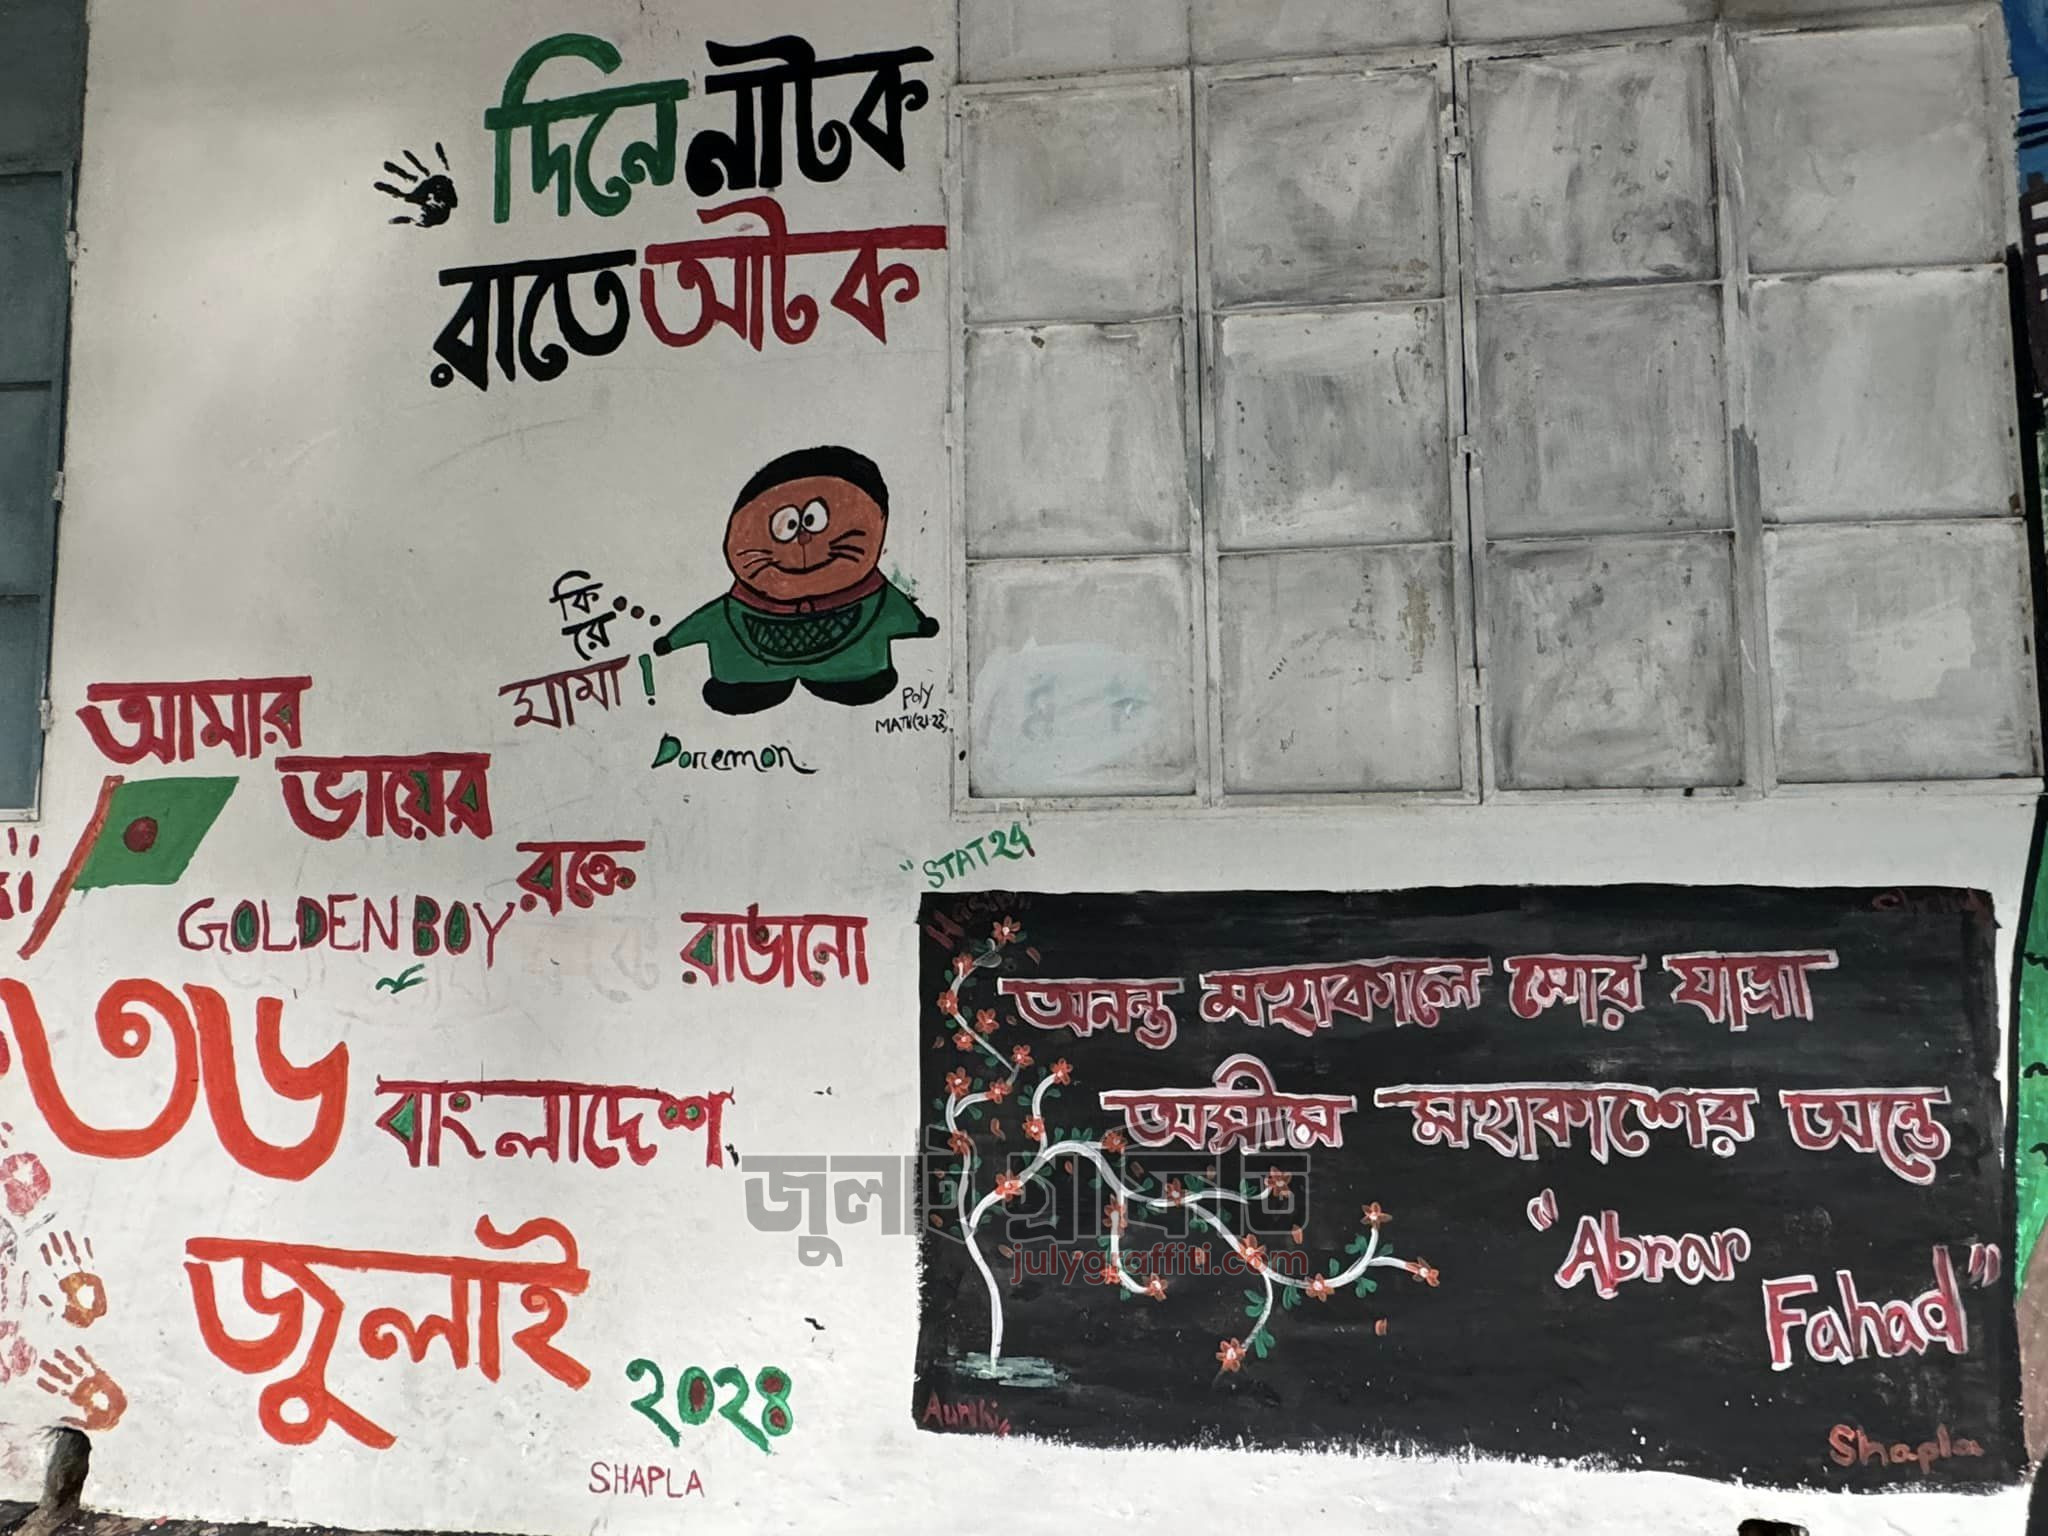 দিনে নাটক
রাতে আটক
কি
রে
মামা!
Poly
MATH(21-22)
Doremon
আমার
ভায়ের
রক্তে
রাঙানো
GOLDEN BOY
৩৬
বাংলাদেশ
জুলাই
২০২৪
SHAPLA
"STAT 24
অনন্ত মহাকালে মোর যাত্রা
অসীম মহাকাশের অন্তে
"Abrar
Fahad"
Shapla
জুলাই গ্রাফিতি
julygraffiti.com